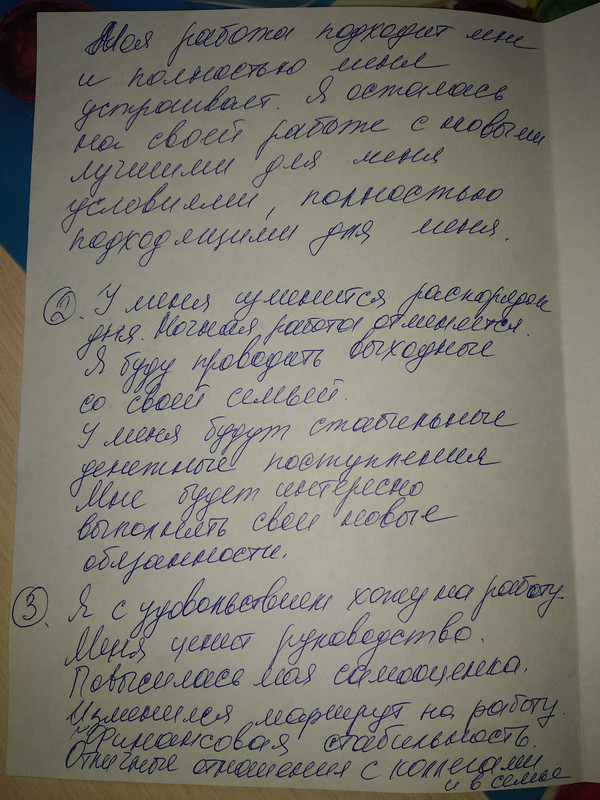 Моя работа подходит мне
и полностью меня
устраивает. Я осталась
на своей работе с новыми
лучшими для меня
условиями, полностью
подходящими для меня.
2. У меня изменится распорядок
дня. Ночная работа отменяется.
Я буду проводить выходные
со своей семьей.
У меня будут стабильные
денежные поступления
Мне будет интересно
выполнять свои новые
обязанности.
3. Я с удовольствием хожу на работу.
Меня ценит руководство.
Повысилась моя самооценка.
Изменился маршрут на работу.
Финансовая стабильность.
Отличные отношения с коллегами
и в семье